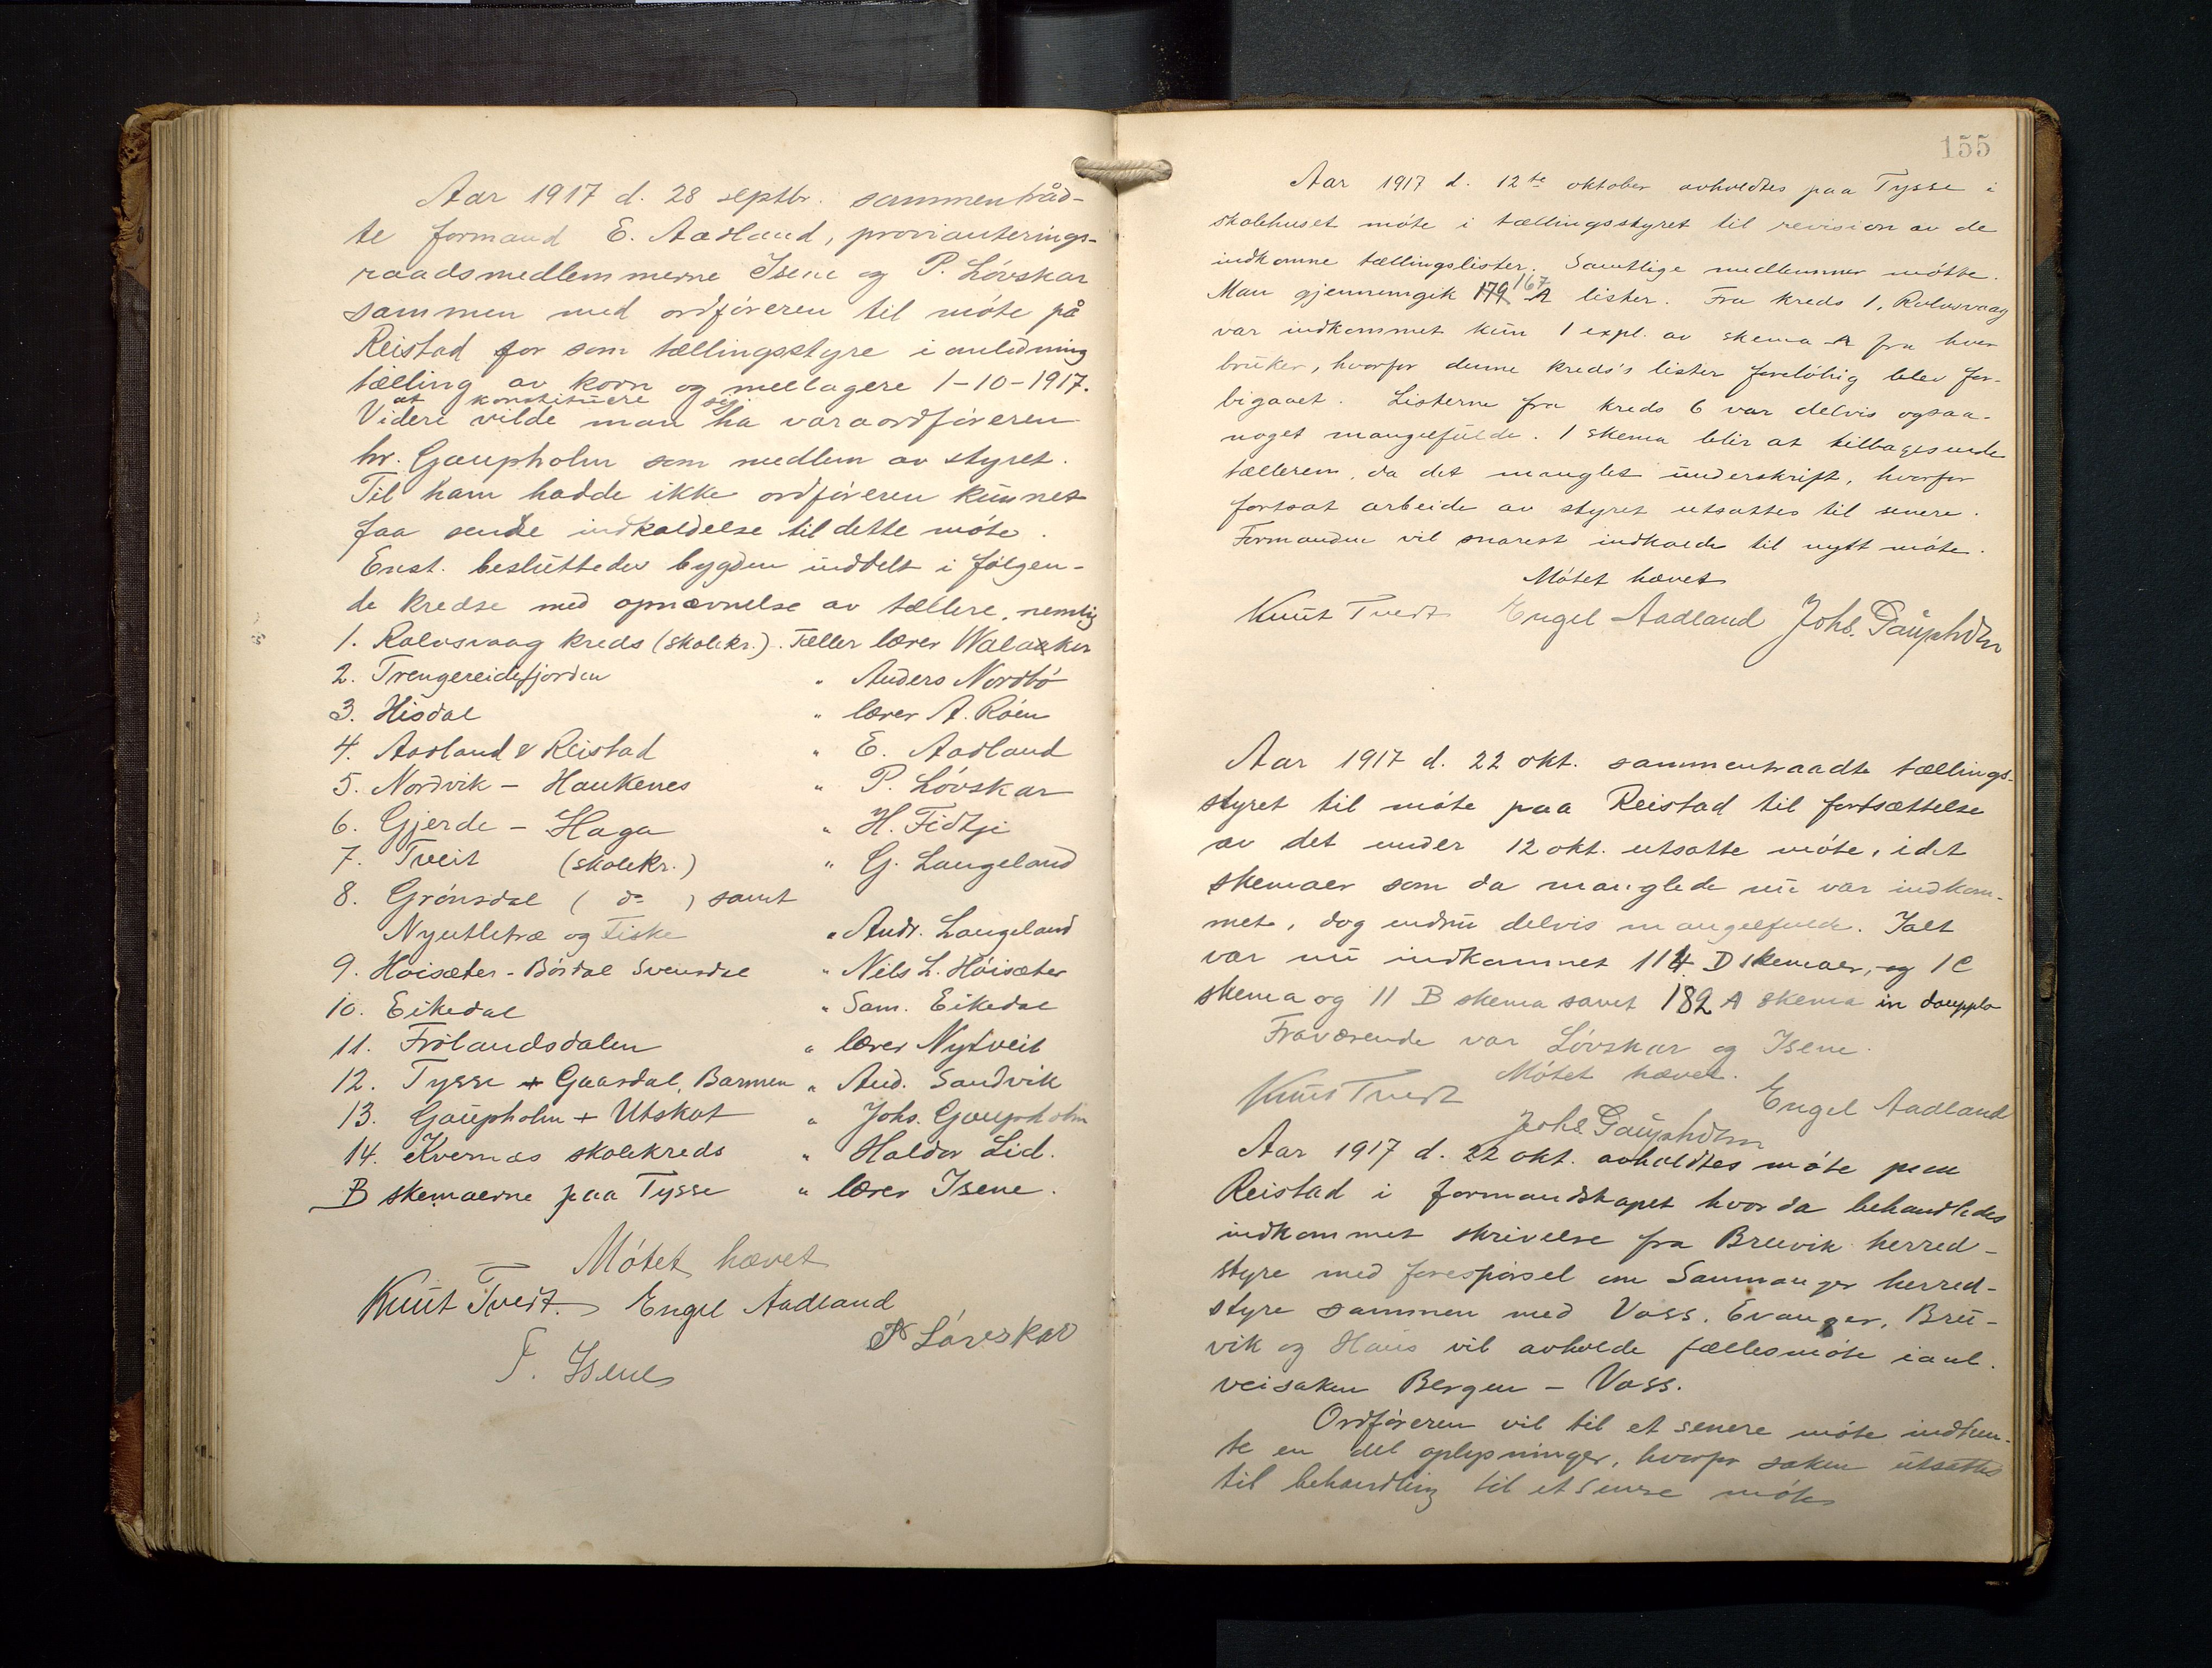 Aar 1917 d. 28 septbr. sammentråd-
te formand E. Aadland, provianterings-
raadsmedlemmerne Isene og P. Lóvskar
sammen med ordfóreren til móte på
Reistad for som tællingsstyre i anledning
tælling av korn og mellagere 1-10-1917.
at konstituere sig.
Videre vilde man ha varaordfóreren
hr. Gaupholm som medlem av styret.
Til ham hadde ikke ordfóreren kunnet
faa sende indkaldelse til dette móte.
Enst. besluttedes bygden inddelt i fólgen-
de kredse med opnævnelse av tællere, nemlig
1. Rolvsvaag kreds (skolekr.). Tæller lærer Walaker
2. Trengereidfjorden " Anders Nordbó
3. Hisdal " lærer A. Róen
4. Aadland & Reistad " E. Aadland
5. Nordvik - Haukenes " P. Lóvskar
6. Gjerde - Haga " H. Fidtje
7. Tveit (skolekr.) " G. Langeland
8. Grónsdal ( do ) samt
Nyutletræ og Fiske " Andr. Langeland
9. Hóisæter - Bórdal Svendsdal " Nils L. Hóisæter
10. Eikedal " Sam. Eikedal
11. Frólandsdalen " lærer Nytveit
12. Tysse + Gaasdal, Barmen " And. Sandvik
13. Gaupholm + Utskot " Johs. Gaupholm
14. Kvernæs skolekreds " Haldor Lid.
B skemaerne paa Tysse " lærer Isene.
Mótet hævet
Knut Tvedt. Engel Aadland
P Lóvskar
T. Isene
155
Aar 1917 d. 12te oktober avholdtes paa Tysse i
skolehuset móte i tællingsstyret til revision av de
indkomne tællingslister. Samtlige medlemmer mótte.
Man gjennemgik 179 167 A lister. Fra kreds 1, Rolvsvaag
var indkommet kun 1 expl. av skema A fra hver
bruker, hvorfor denne kreds's lister forelóbig blev for-
bigaaet. Listerne fra kreds 6 var delvis ogsaa
noget mangelfulde. 1 skema blir at tilbagesende
tælleren, da det manglet underskrift, hvorfor
fortsat arbeide av styret utsattes til senere.
Formanden vil snarest indkalde til nytt móte.
Mótet hævet
Knut Tvedt Engel Aadland Johs. Gaupholm
Aar 1917 d. 22 okt. sammentraadte tællings-
styret til móte paa Reistad til fortsættelse
av det under 12 okt. utsatte móte, idet
skemaer som da manglede nu var indkom-
met, dog endnu delvis mangelfulde. Ialt
var nu indkommet 114 D skemaer, og 1 C
skema og 11 B skema samt 182 A skema in douplo
Fraværende var Lóvskar og Isene.
Mótet hævet.
Knut Tvedt Engel Aadland
Johs Gaupholm
Aar 1917 d. 22 okt. avholdtes móte paa
Reistad i formandskapet hvor da behandledes
indkommet skrivelse fra Bruvik herred-
styre med forespórsel om Samnanger herred-
styre sammen med Voss, Evanger, Bru-
vik og Haus vil avholde fællesmóte i anl.
veisaken Bergen - Voss.
Ordfóreren vil til et senere móte indhen-
te en del oplysninger, hvorfor saken utsattes
til behandling til et senere móte